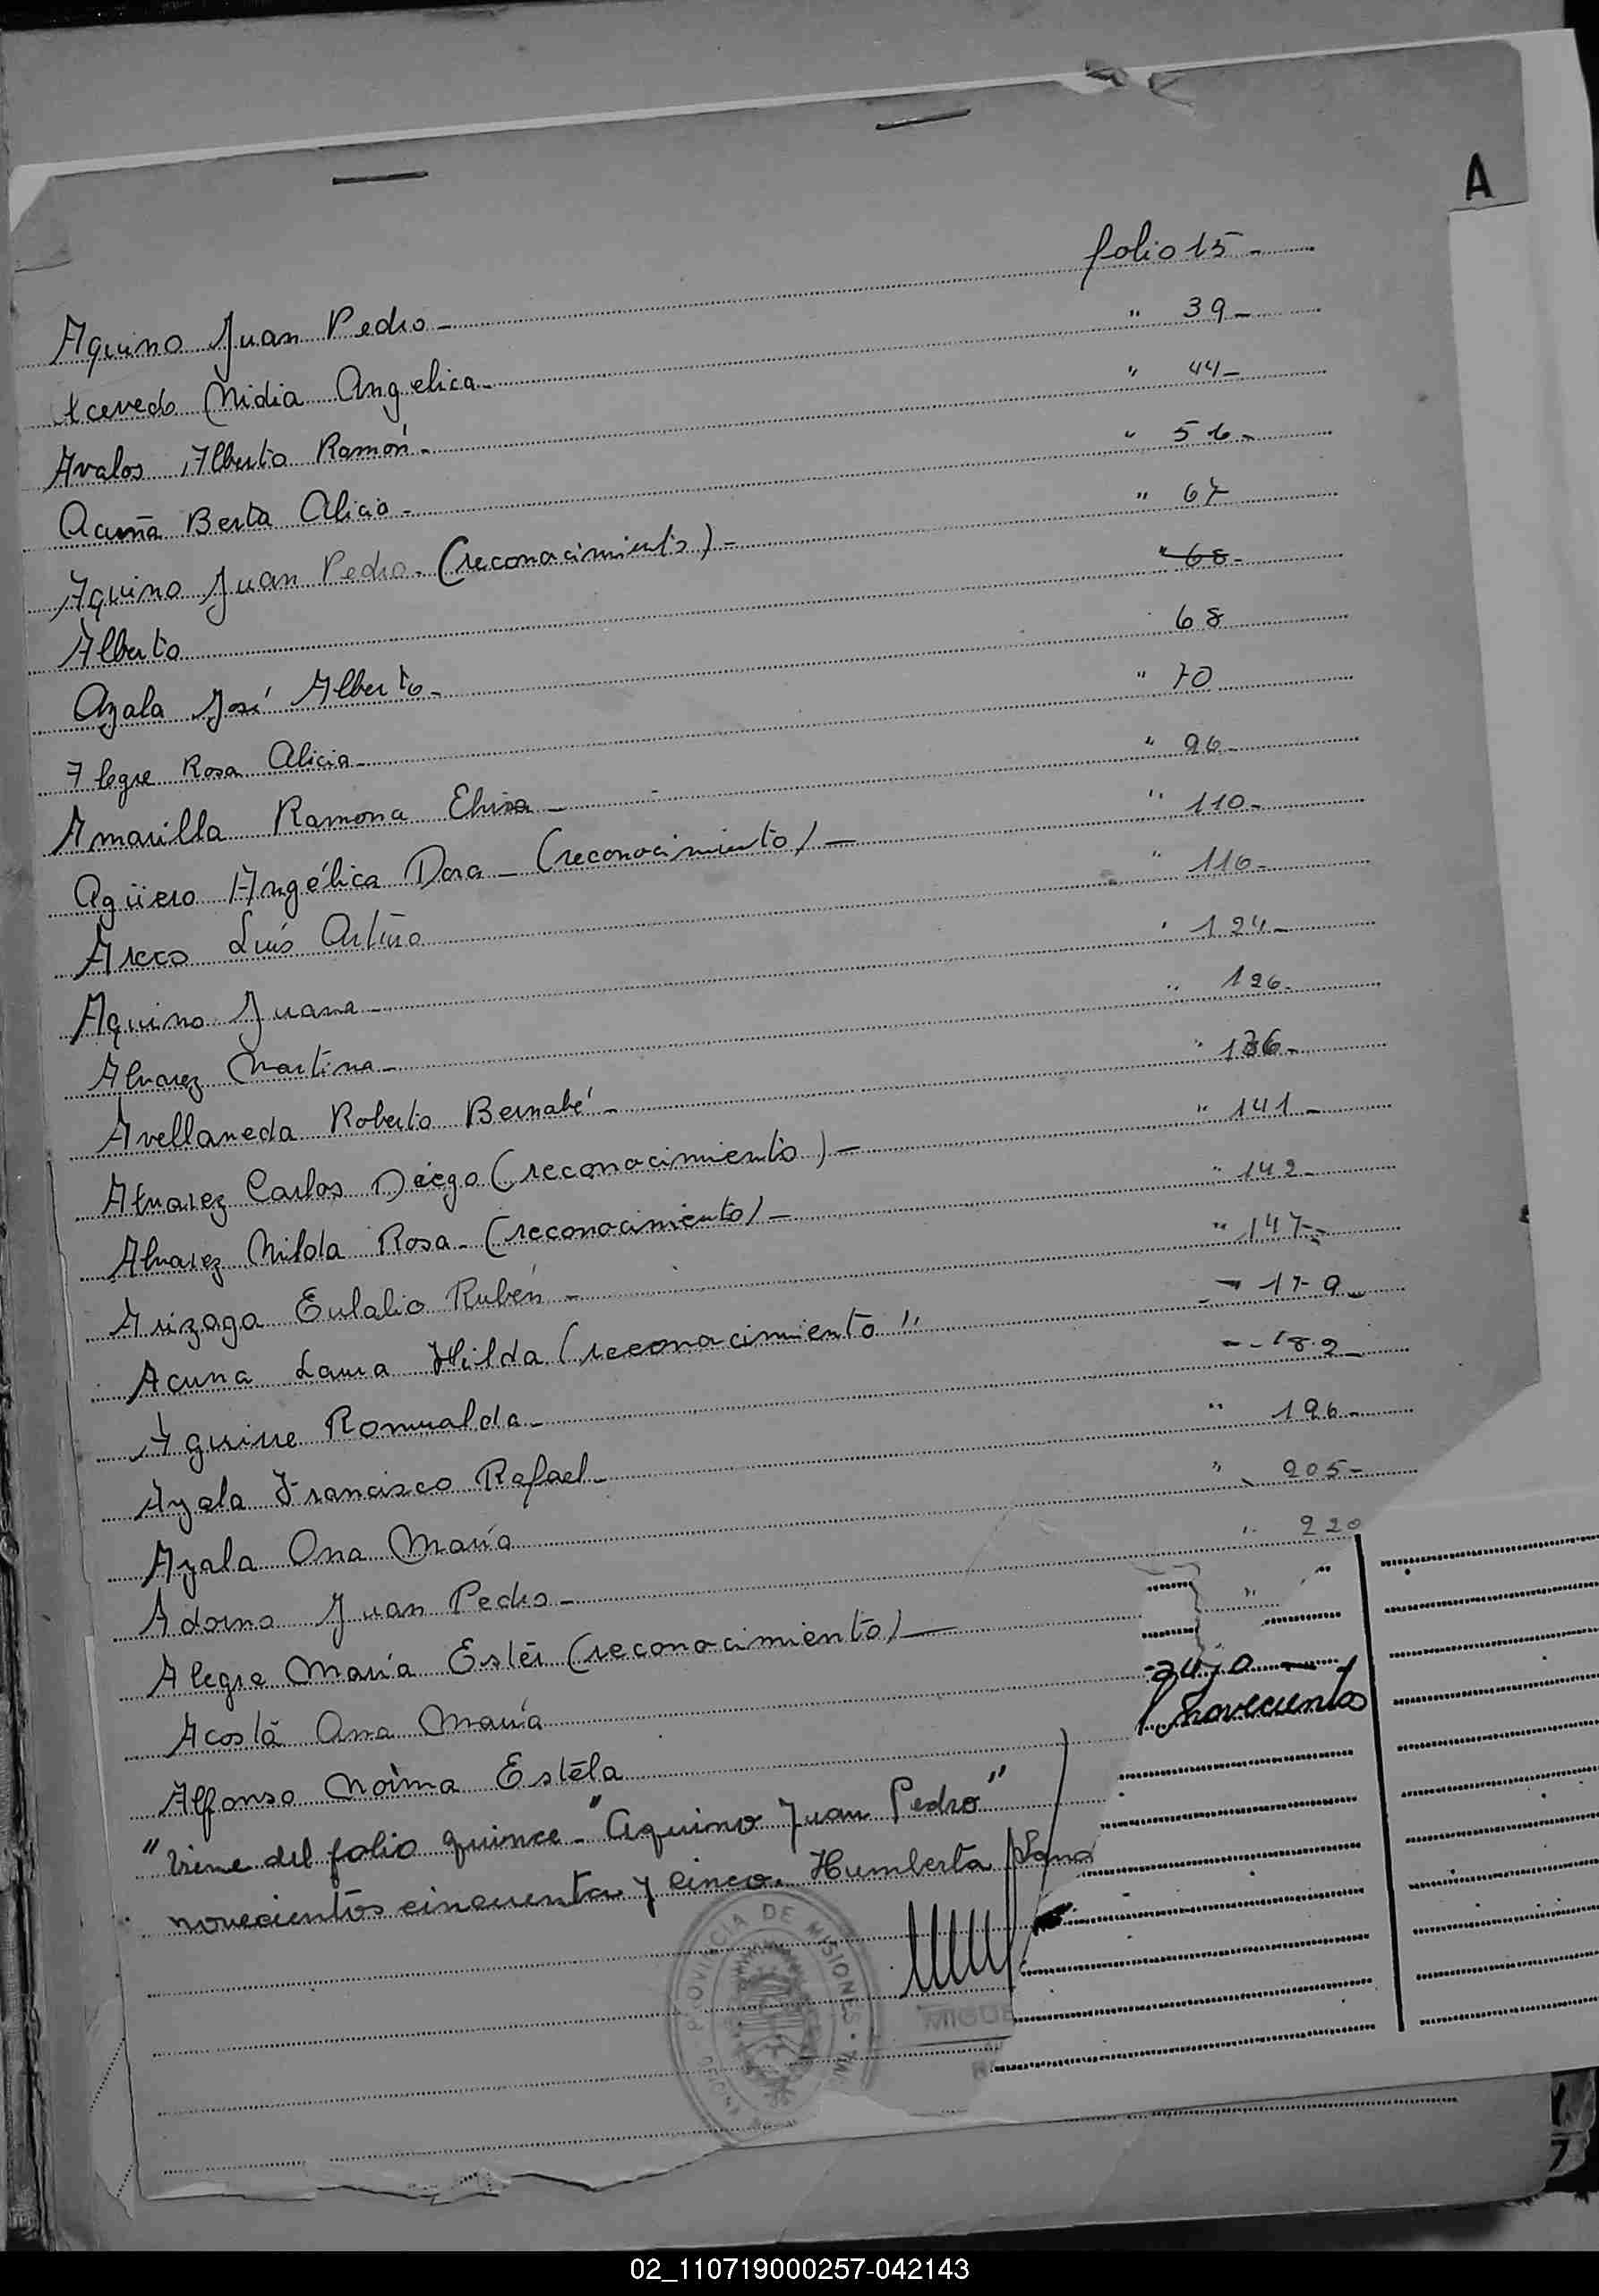 A
Aquino Juan Pedro - folio 15 -
Acevedo Nidia Angelica - " 39 -
Avalos Alberto Ramón - " 44 -
Acuña Berta Alicia - " 56 -
Aquino Juan Pedro - (reconocimiento) - " 67
Alberto " 68 -
Ayala José Alberto - 68
Alegre Rosa Alicia - " 70
Amarilla Ramona Elvira - " 96 -
Agüero Angélica Dora - (reconocimiento) - " 110 -
Areco Luís Arturo " 116 -
Aquino Juana - " 124 -
Alvarez Martina - " 126 -
Avellaneda Roberto Bernabé - " 136 -
Alvarez Carlos Diego (reconocimiento) - " 141 -
Alvarez Nilda Rosa - (reconocimiento) - " 142 -
Arizaga Eulalio Rubén - " 147 -
Acuna Laura Hilda (reconocimiento " - 179 -
Aguirre Romualda - - - 182 -
Ayala Francisco Rafael - " 196 -
Ayala Ana María " 205 -
Adorno Juan Pedro - " 220
Alegre María Estér (reconocimiento) - "
Acosta Ana María
Alfonso Norma Estela novecientos
"Viene del folio quince - "Aquino Juan Pedro"
novecientos cincuenta y cinco. Humberta
PROVINCIA DE MISIONES
MIGUE
02_110719000257-042143